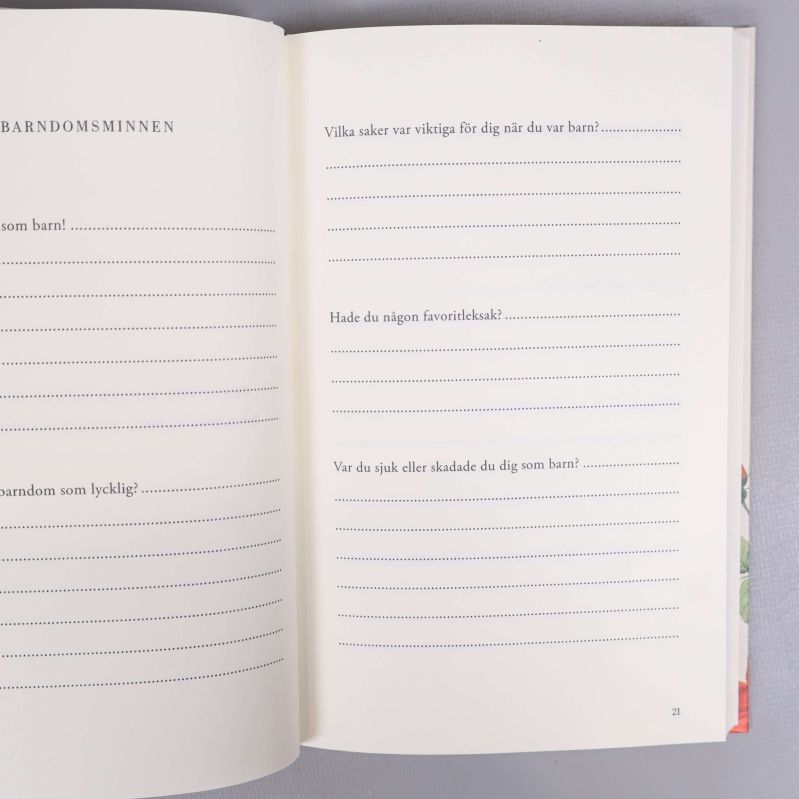 BARNDOMSMINNEN
som barn! ........................................
barndom som lycklig? ...........................
Vilka saker var viktiga för dig när du var barn? ....................
Hade du någon favoritleksak? ............................................
Var du sjuk eller skadade du dig som barn? ........................
21